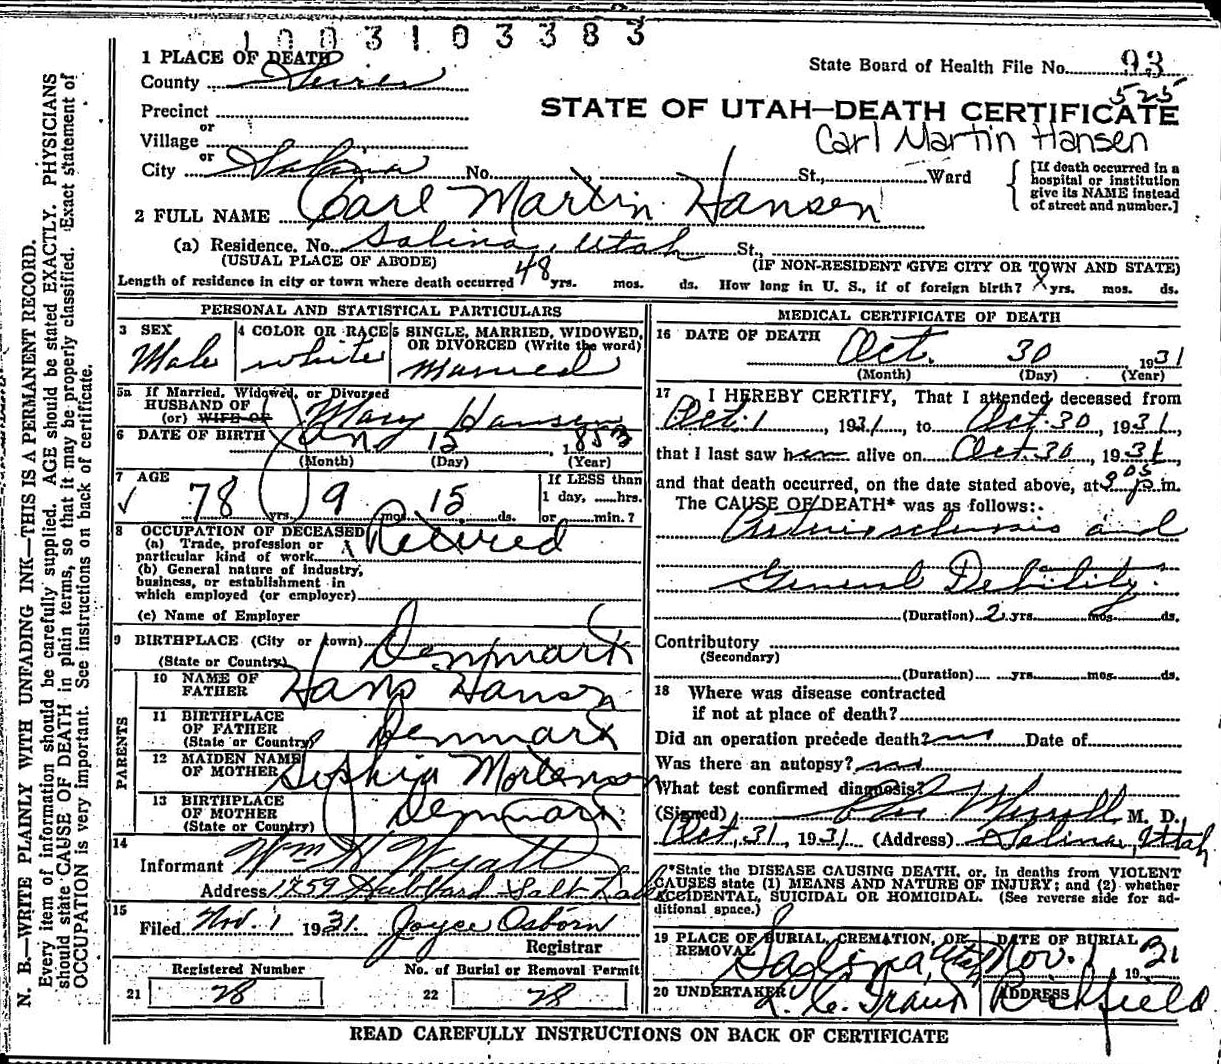 1003103383
1 PLACE OF DEATH
County Sevier
State Board of Health File No. 93
525
Precinct
or
Village
or
City Salina No. St., Ward
STATE OF UTAH—DEATH CERTIFICATE
Carl Martin Hansen
[If death occurred in a
hospital or institution
give its NAME instead
of street and number.]
2 FULL NAME Carl Martin Hansen
(a) Residence. No. Salina, Utah St.,
(USUAL PLACE OF ABODE) (IF NON-RESIDENT GIVE CITY OR TOWN AND STATE)
Length of residence in city or town where death occurred 48 yrs. mos. ds. How long in U. S., if of foreign birth? X yrs. mos. ds.
PERSONAL AND STATISTICAL PARTICULARS
3 SEX
Male
4 COLOR OR RACE
white
5 SINGLE, MARRIED, WIDOWED,
OR DIVORCED (Write the word)
Married
5a If Married, Widowed, or Divorced
HUSBAND OF
(or) WIFE OF Mary Hansen
6 DATE OF BIRTH Jan 15, 1853
(Month) (Day) (Year)
7 AGE
78 yrs. 9 mos. 15 ds.
If LESS than
1 day, ......hrs.
or ........min.?
8 OCCUPATION OF DECEASED
(a) Trade, profession or
particular kind of work Retired
(b) General nature of industry,
business, or establishment in
which employed (or employer)
(c) Name of Employer
9 BIRTHPLACE (City or town)
(State or Country) Denmark
PARENTS
10 NAME OF
FATHER Hans Hansen
11 BIRTHPLACE
OF FATHER
(State or Country) Denmark
12 MAIDEN NAME
OF MOTHER Sophia Mortenson
13 BIRTHPLACE
OF MOTHER
(State or Country) Denmark
14
Informant Wm K Wyatt
Address 1759 Hubbard Salt Lake
15
Filed Nov. 1 1931. Joyce Osborn
Registrar
Registered Number
21 28
No. of Burial or Removal Permit
22 28
MEDICAL CERTIFICATE OF DEATH
16 DATE OF DEATH
Oct. 30 1931
(Month) (Day) (Year)
17 I HEREBY CERTIFY, That I attended deceased from
Oct. 1, 1931, to Oct. 30, 1931,
that I last saw him alive on Oct. 30, 1931,
and that death occurred, on the date stated above, at 9 05 p.m.
The CAUSE OF DEATH* was as follows:
Arteriosclerosis and
General Debility.
(Duration) 2 yrs. mos. ds.
Contributory
(Secondary)
(Duration) yrs. mos. ds.
18 Where was disease contracted
if not at place of death?
Did an operation precede death? no Date of
Was there an autopsy? no
What test confirmed diagnosis?
(Signed) M. D.
Oct, 31, 1931 (Address) Salina, Utah
*State the DISEASE CAUSING DEATH, or, in deaths from VIOLENT
CAUSES state (1) MEANS AND NATURE OF INJURY; and (2) whether
ACCIDENTAL, SUICIDAL OR HOMICIDAL. (See reverse side for ad-
ditional space.)
19 PLACE OF BURIAL, CREMATION, OR
REMOVAL Salina, Utah
DATE OF BURIAL
Nov. 1 1931
20 UNDERTAKER
ADDRESS
Richfield
READ CAREFULLY INSTRUCTIONS ON BACK OF CERTIFICATE
N. B.—WRITE PLAINLY WITH UNFADING INK—THIS IS A PERMANENT RECORD.
Every item of information should be carefully supplied. AGE should be stated EXACTLY. PHYSICIANS
should state CAUSE OF DEATH in plain terms, so that it may be properly classified. Exact statement of
OCCUPATION is very important. See instructions on back of certificate.